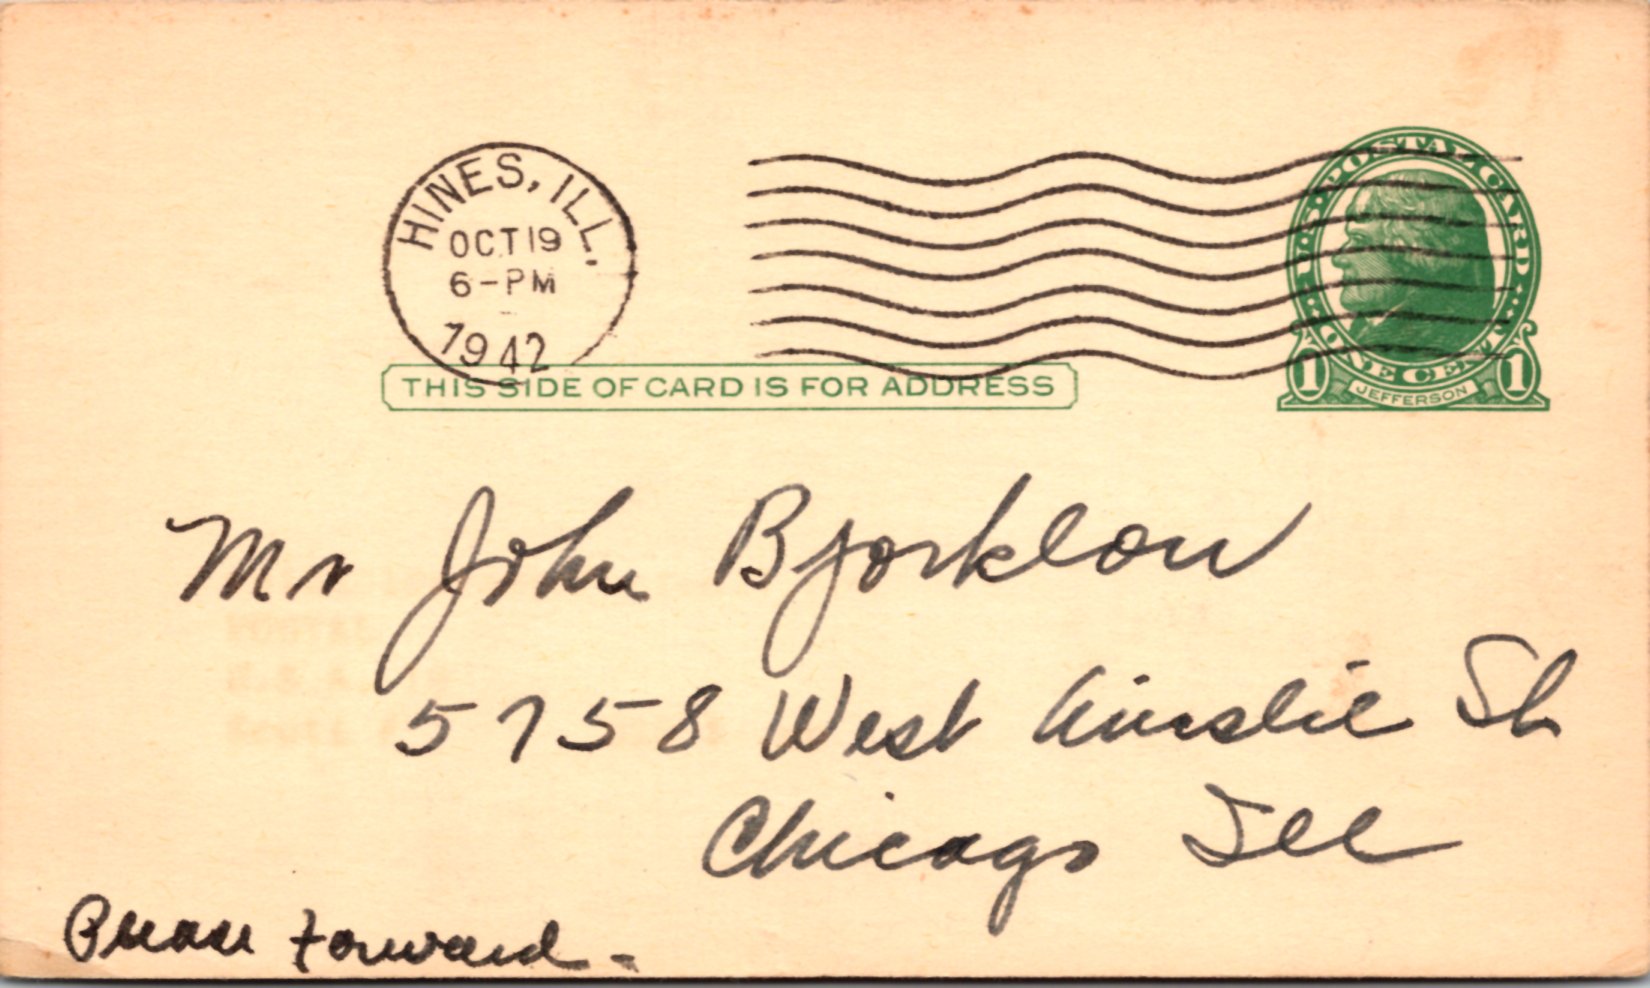 HINES, ILL.
OCT 19
6-PM
1942
U.S. POSTAL CARD
ONE CENT
1 JEFFERSON 1
THIS SIDE OF CARD IS FOR ADDRESS
Mr John Bjorklow
5758 West Ainslie St
Chicago Ill
Please Forward -